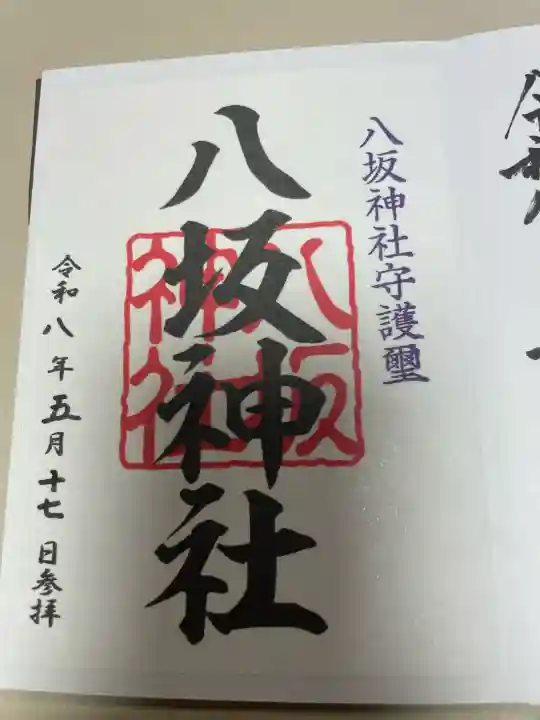 八坂神社守護璽
八坂神社
八坂
神社
令和八年五月十七日参拝